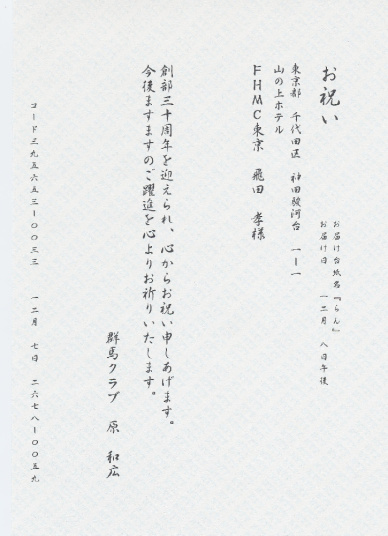 お祝い
お届け台紙名『らん』
お届け日 一二月 八日午後
東京都 千代田区 神田駿河台 一ー一
山の上ホテル
FHMC東京 飛田 孝様
創部三十周年を迎えられ、心からお祝い申しあげます。
今後ますますのご躍進を心よりお祈りいたします。
群馬クラブ 原 和広
コード三九五六五三ー〇〇三三 一二月 七日 二六七八ー〇〇五九